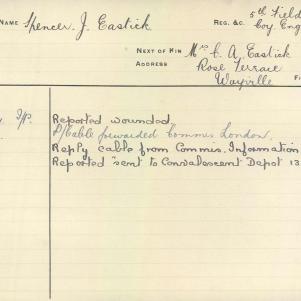 NAME Spencer. J. Eastick
REG. &C. 5th Field
Coy. Eng
NEXT OF KIN Mrs C. A. Eastick
ADDRESS Rose Terrace
Wayville
Reported wounded.
P/Cable forwarded Commis London.
Reply cable from Commis. Information
Reported "sent to Convalescent Depot 13